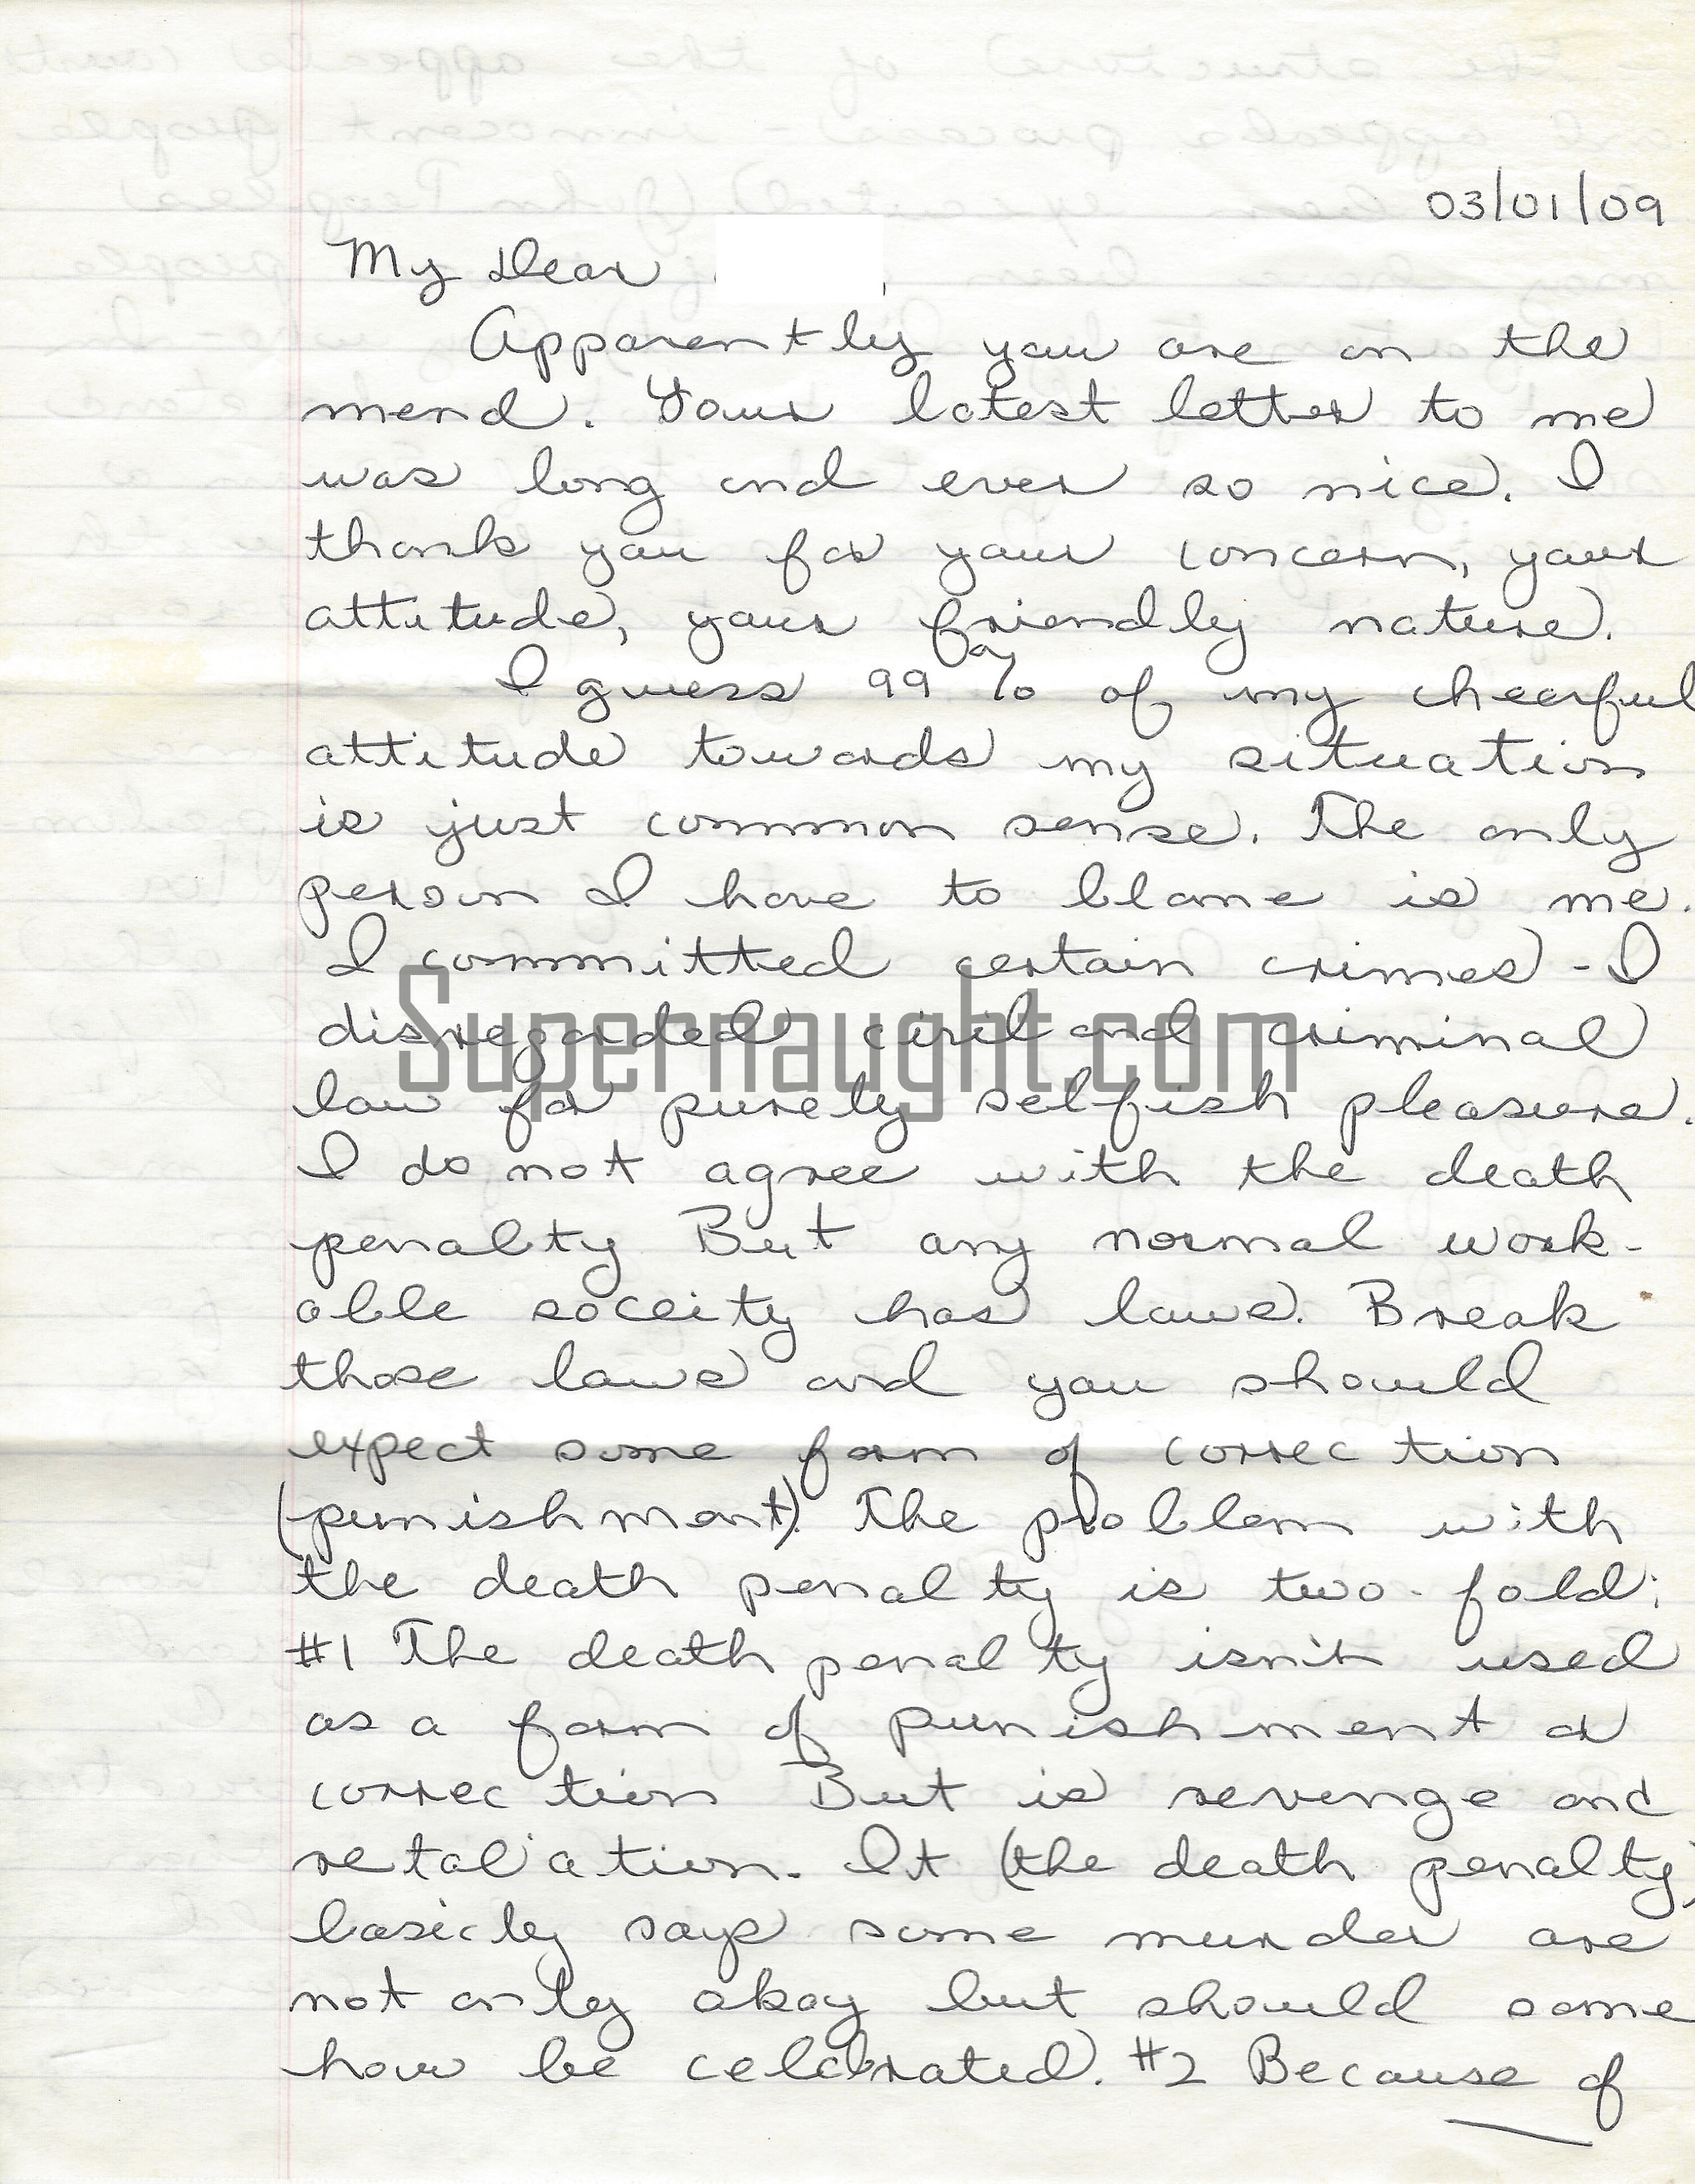 03/01/09
My Dear ,
Apparently you are on the
mend. Your latest letter to me
was long and ever so nice. I
thank you for your concern, your
attitude, your friendly nature.
I guess 99% of my cheerful
attitude towards my situation
is just common sense. The only
person I have to blame is me.
I committed certain crimes - I
disregarded civil and criminal
Supernaught.com
law for purely selfish pleasure.
I do not agree with the death
penalty But any normal work-
able soceity has laws. Break
those laws and you should
expect some form of correction
(punishment). The problem with
the death penalty is two-fold:
#1 The death penalty isn't used
as a form of punishment or
correction But is revenge and
retaliation. It (the death penalty)
basicly says some murder are
not only okay but should some
how be celebrated. #2 Because of